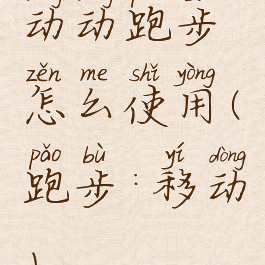 动动跑步
zěn me shǐ yòng
怎么使用(
pǎo bù yí dòng
跑步:移动
)